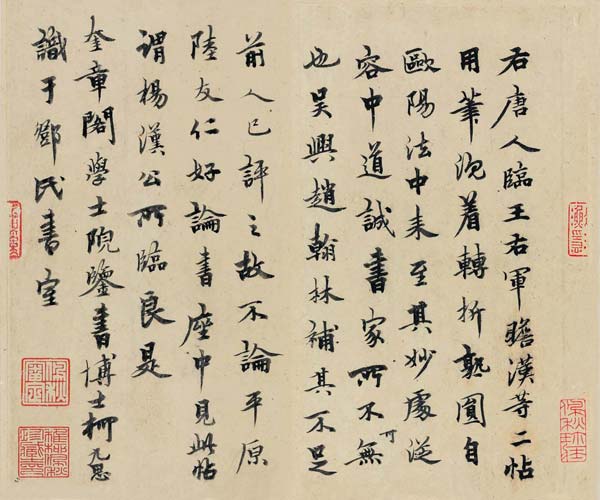 右唐人臨王右軍瞻漢等二帖
用筆沉着轉折熟圓自
歐陽法中来至其妙處從
容中道誠書家所不可無
也吳興趙翰林補其不足
前人已評之故不論平原
陸友仁好論書座中見此帖
謂楊漢公所臨良是
奎章閣學士院鑒書博士柯九思
識于鄧氏書室